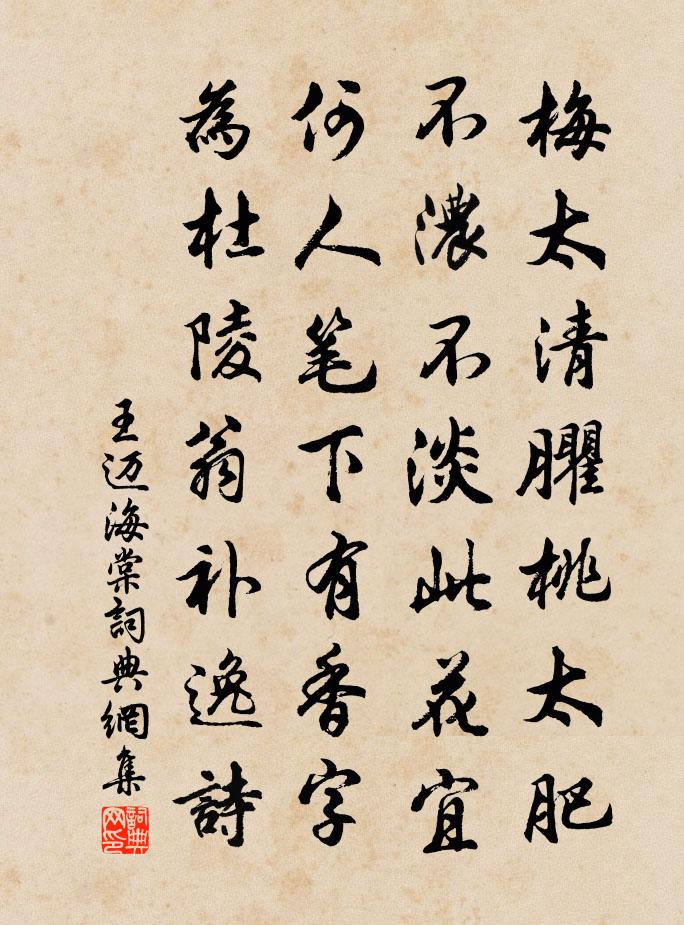 梅太清臞桃太肥
不濃不淡此花宜
何人笔下有香字
為杜陵翁补逸詩
王迈海棠詞典網集
詞典网印